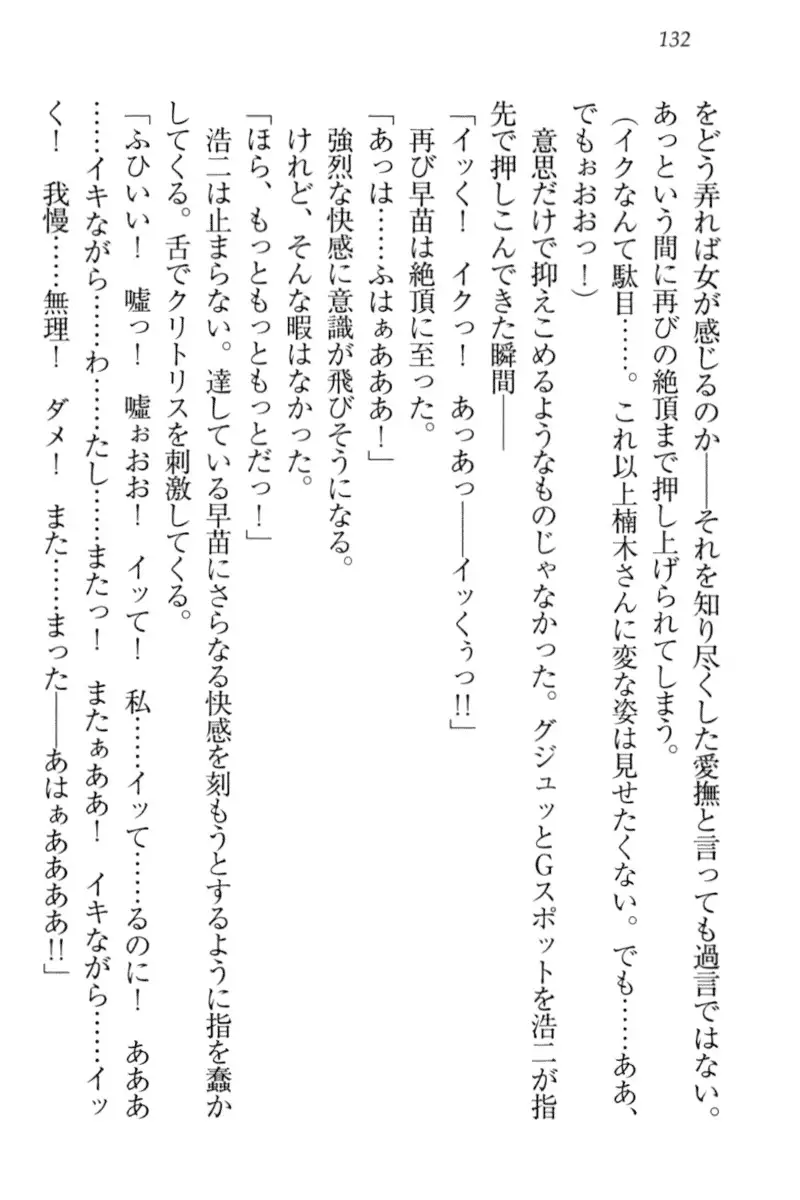 132
をどう弄れば女が感じるのか――それを知り尽くした愛撫と言っても過言ではない。
あっという間に再びの絶頂まで押し上げられてしまう。
（イクなんて駄目……。これ以上楠木さんに変な姿は見せたくない。でも……ああ、
でもぉおおっ！）
　意思だけで抑えこめるようなものじゃなかった。グジュッとGスポットを浩二が指
先で押しこんできた瞬間――
「イッく！　イクっ！　あっあっ――イッくぅっ!!」
　再び早苗は絶頂に至った。
「あっは……ふはぁあああ！」
　強烈な快感に意識が飛びそうになる。
　けれど、そんな暇はなかった。
「ほら、もっともっともっとだっ！」
　浩二は止まらない。達している早苗にさらなる快感を刻もうとするように指を蠢か
してくる。舌でクリトリスを刺激してくる。
「ふひいい！　嘘っ！　嘘ぉおお！　イッて！　私……イッて……るのに！　あああ
……イキながら……わ……たし……またっ！　またぁああ！　イキながら……イッ
く！　我慢……無理！　ダメ！　また……まった――あはぁああああ!!」